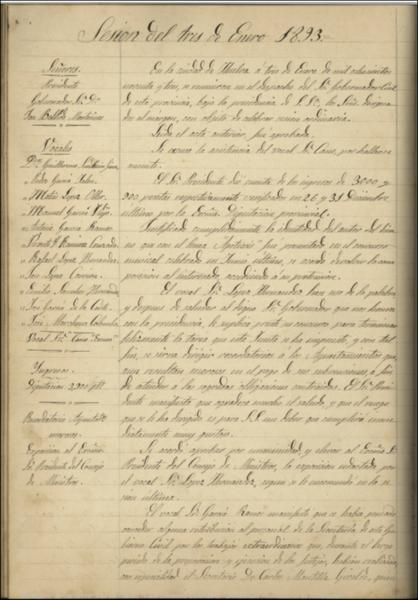 Sesion del tres de Enero 1893.
Señores.
Presidente
Gobernador
Vocales
Dn. Guillermo
" Pedro García
" Mateo
" Manuel García
" Antonio García Ramos
" Rafael López Hernandez
" José López
" José García de la
Ingresos.
Diputación
Recordatorio Ayuntamtos
morosos.
Exposicion al Excmo.
Sr. Presidente del Consejo
de Ministros.
En la ciudad de Huelva á tres de Enero de mil ochocientos
noventa y tres, se reunieron en el despacho del Sr. Gobernador Civil
de esta provincia, bajo la presidencia de S. Sa. los Sres. designa-
dos al margen, con objeto de celebrar sesion ordinaria.
Leida el acta anterior, fué aprobada.
Se excusa la asistencia del vocal Sr. Cano, por hallarse
El Sr. Presidente dió cuenta de los ingresos de 3000 y
900 pesetas respectivamente verificados en 26 y 31 Diciembre
último por la Excma. Diputacion provincial.
Justificada cumplidamente la identidad del autor del him-
no que con el lema fué presentado en el concurso
musical celebrado en Junio último, se acordó devolver la com-
posicion al interesado, accediendo á su pretension.
El vocal Sr. López Hernandez hace uso de la palabra
y despues de saludar al digno Sr. Gobernador que nos honra
con la presidencia, le suplica preste su concurso para terminar
felizmente la tarea que esta Junta se ha impuesto, y con tal
fin, se sirva dirigir recordatorios á los Ayuntamientos que,
aun resultan morosos en el pago de sus subvenciones, á fin
de atender á las sagradas obligaciones contraidas. El Sr. Presi-
dente manifiesta que agradece mucho el saludo, y que el ruego
que se le ha dirigido es para S. S. un deber que cumplirá inme-
diatamente muy gustoso.
Se acordó aprobar por unanimidad y elevar al Excmo. Sr.
Presidente del Consejo de Ministros, la exposicion redactada por
el vocal Sr. López Hernandez, segun se le encomendó en la se-
sion última.
El vocal Sr. García Ramos manifiesta que se habia pensado
conceder alguna retribucion al personal de la Secretaría de este Go-
bierno Civil por los trabajos extraordinarios que, durante el largo
periodo de la preparacion y ejecucion de los festejos, habian realizado,
con especialidad el Secretario Dn. Carlos